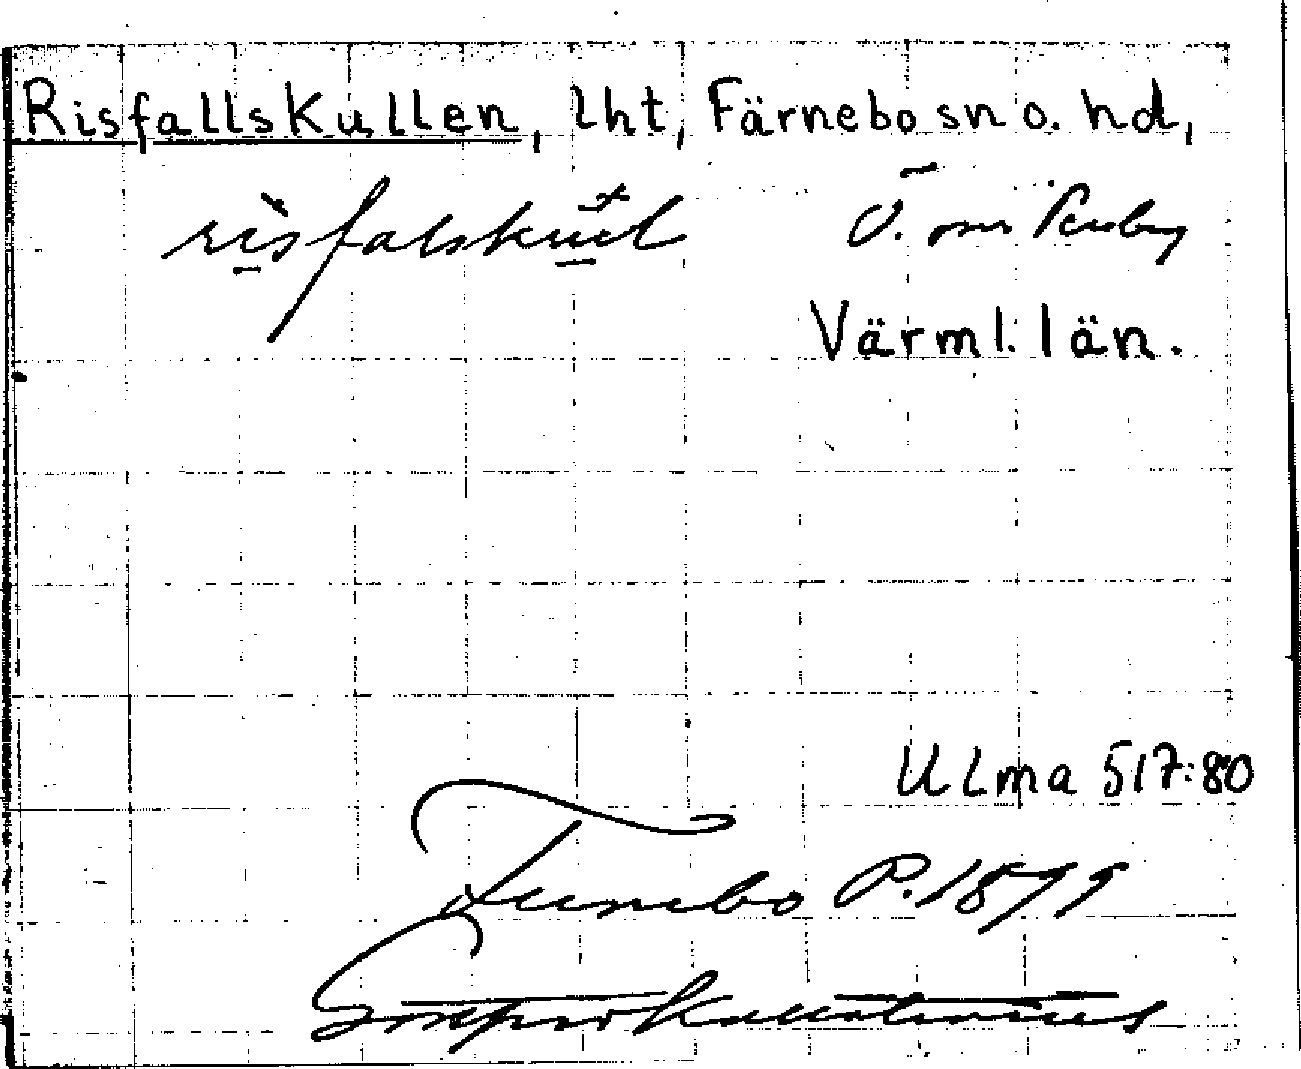 Risfallskullen, lht, Färnebo sn o. hd,
risfalskul Ö. om Persberg
Värml. län.
ULma 517:80
Färnebo P. 1899